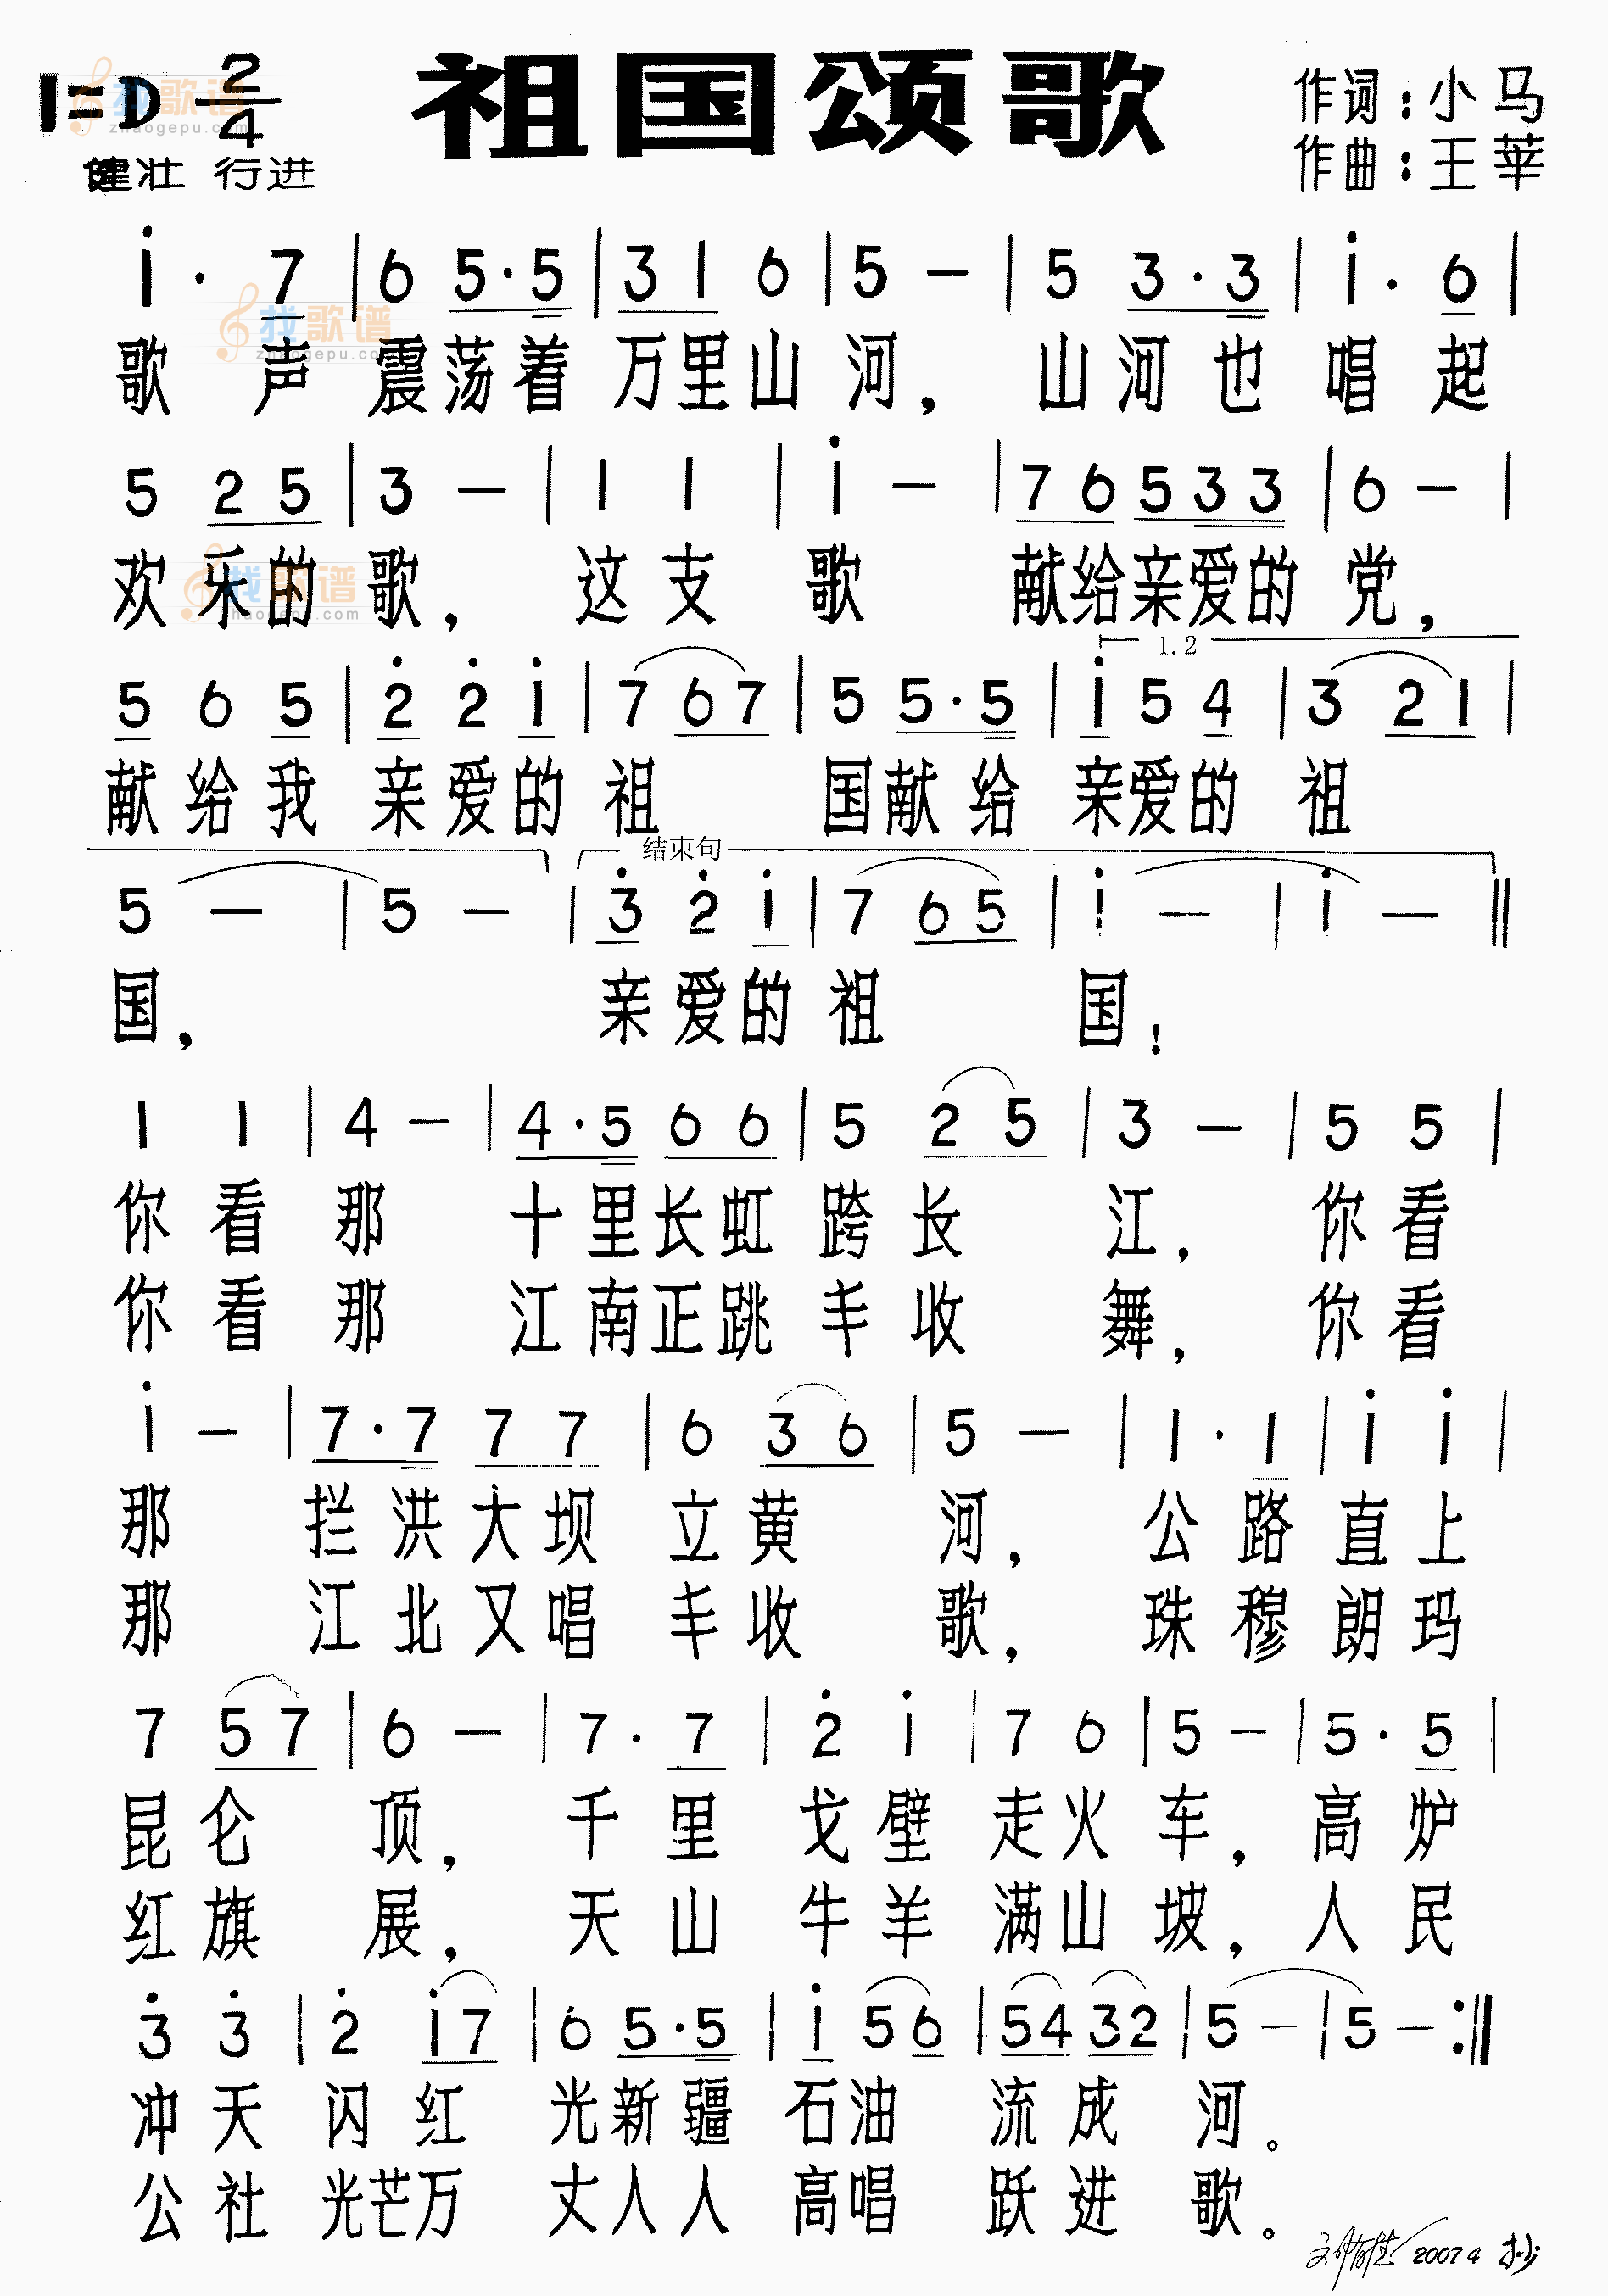 1=D 2/4 祖国颂歌 作词：小马
健壮 行进 作曲：王莘
找歌谱
zhaogepu.com
i · 7 | 6 5·5 | 3 1 6 | 5 — | 5 3·3 | i · 6 |
找歌谱
zhaogepu.com
歌 声 震荡着 万里山 河， 山河也 唱 起
5 2 5 | 3 — | 1 1 | i — | 7 6 5 3 3 | 6 — |
欢乐的 歌， 这支 歌 献给亲爱的 党，
找歌谱
zhaogepu.com
1.2
5 6 5 | 2 2 i | 7 6 7 | 5 5·5 | i 5 4 | 3 2 1 |
献给我 亲爱的 祖 国献给 亲爱的 祖
结束句
5 — | 5 — | 3 2 i | 7 6 5 | i — | i — ‖
国， 亲爱的 祖 国！
1 1 | 4 — | 4·5 6 6 | 5 2 5 | 3 — | 5 5 |
你看 那 十里长虹 跨长 江， 你看
你看 那 江南正跳 丰收 舞， 你看
i — | 7·7 7 7 | 6 3 6 | 5 — | 1 · 1 | i i |
那 拦洪大坝 立黄 河， 公路 直上
那 江北又唱 丰收 歌， 珠穆 朗玛
7 5 7 | 6 — | 7 · 7 | 2 i | 7 6 | 5 — | 5 · 5 |
昆仑 顶， 千里 戈壁 走火 车， 高炉
红旗 展， 天山 牛羊 满山 坡， 人民
3 3 | 2 i 7 | 6 5·5 | i 5 6 | 5 4 3 2 | 5 — | 5 — :‖
冲天 闪红 光新疆 石油 流成 河。
公社 光芒万 丈人人 高唱 跃进 歌。
2007 4 抄